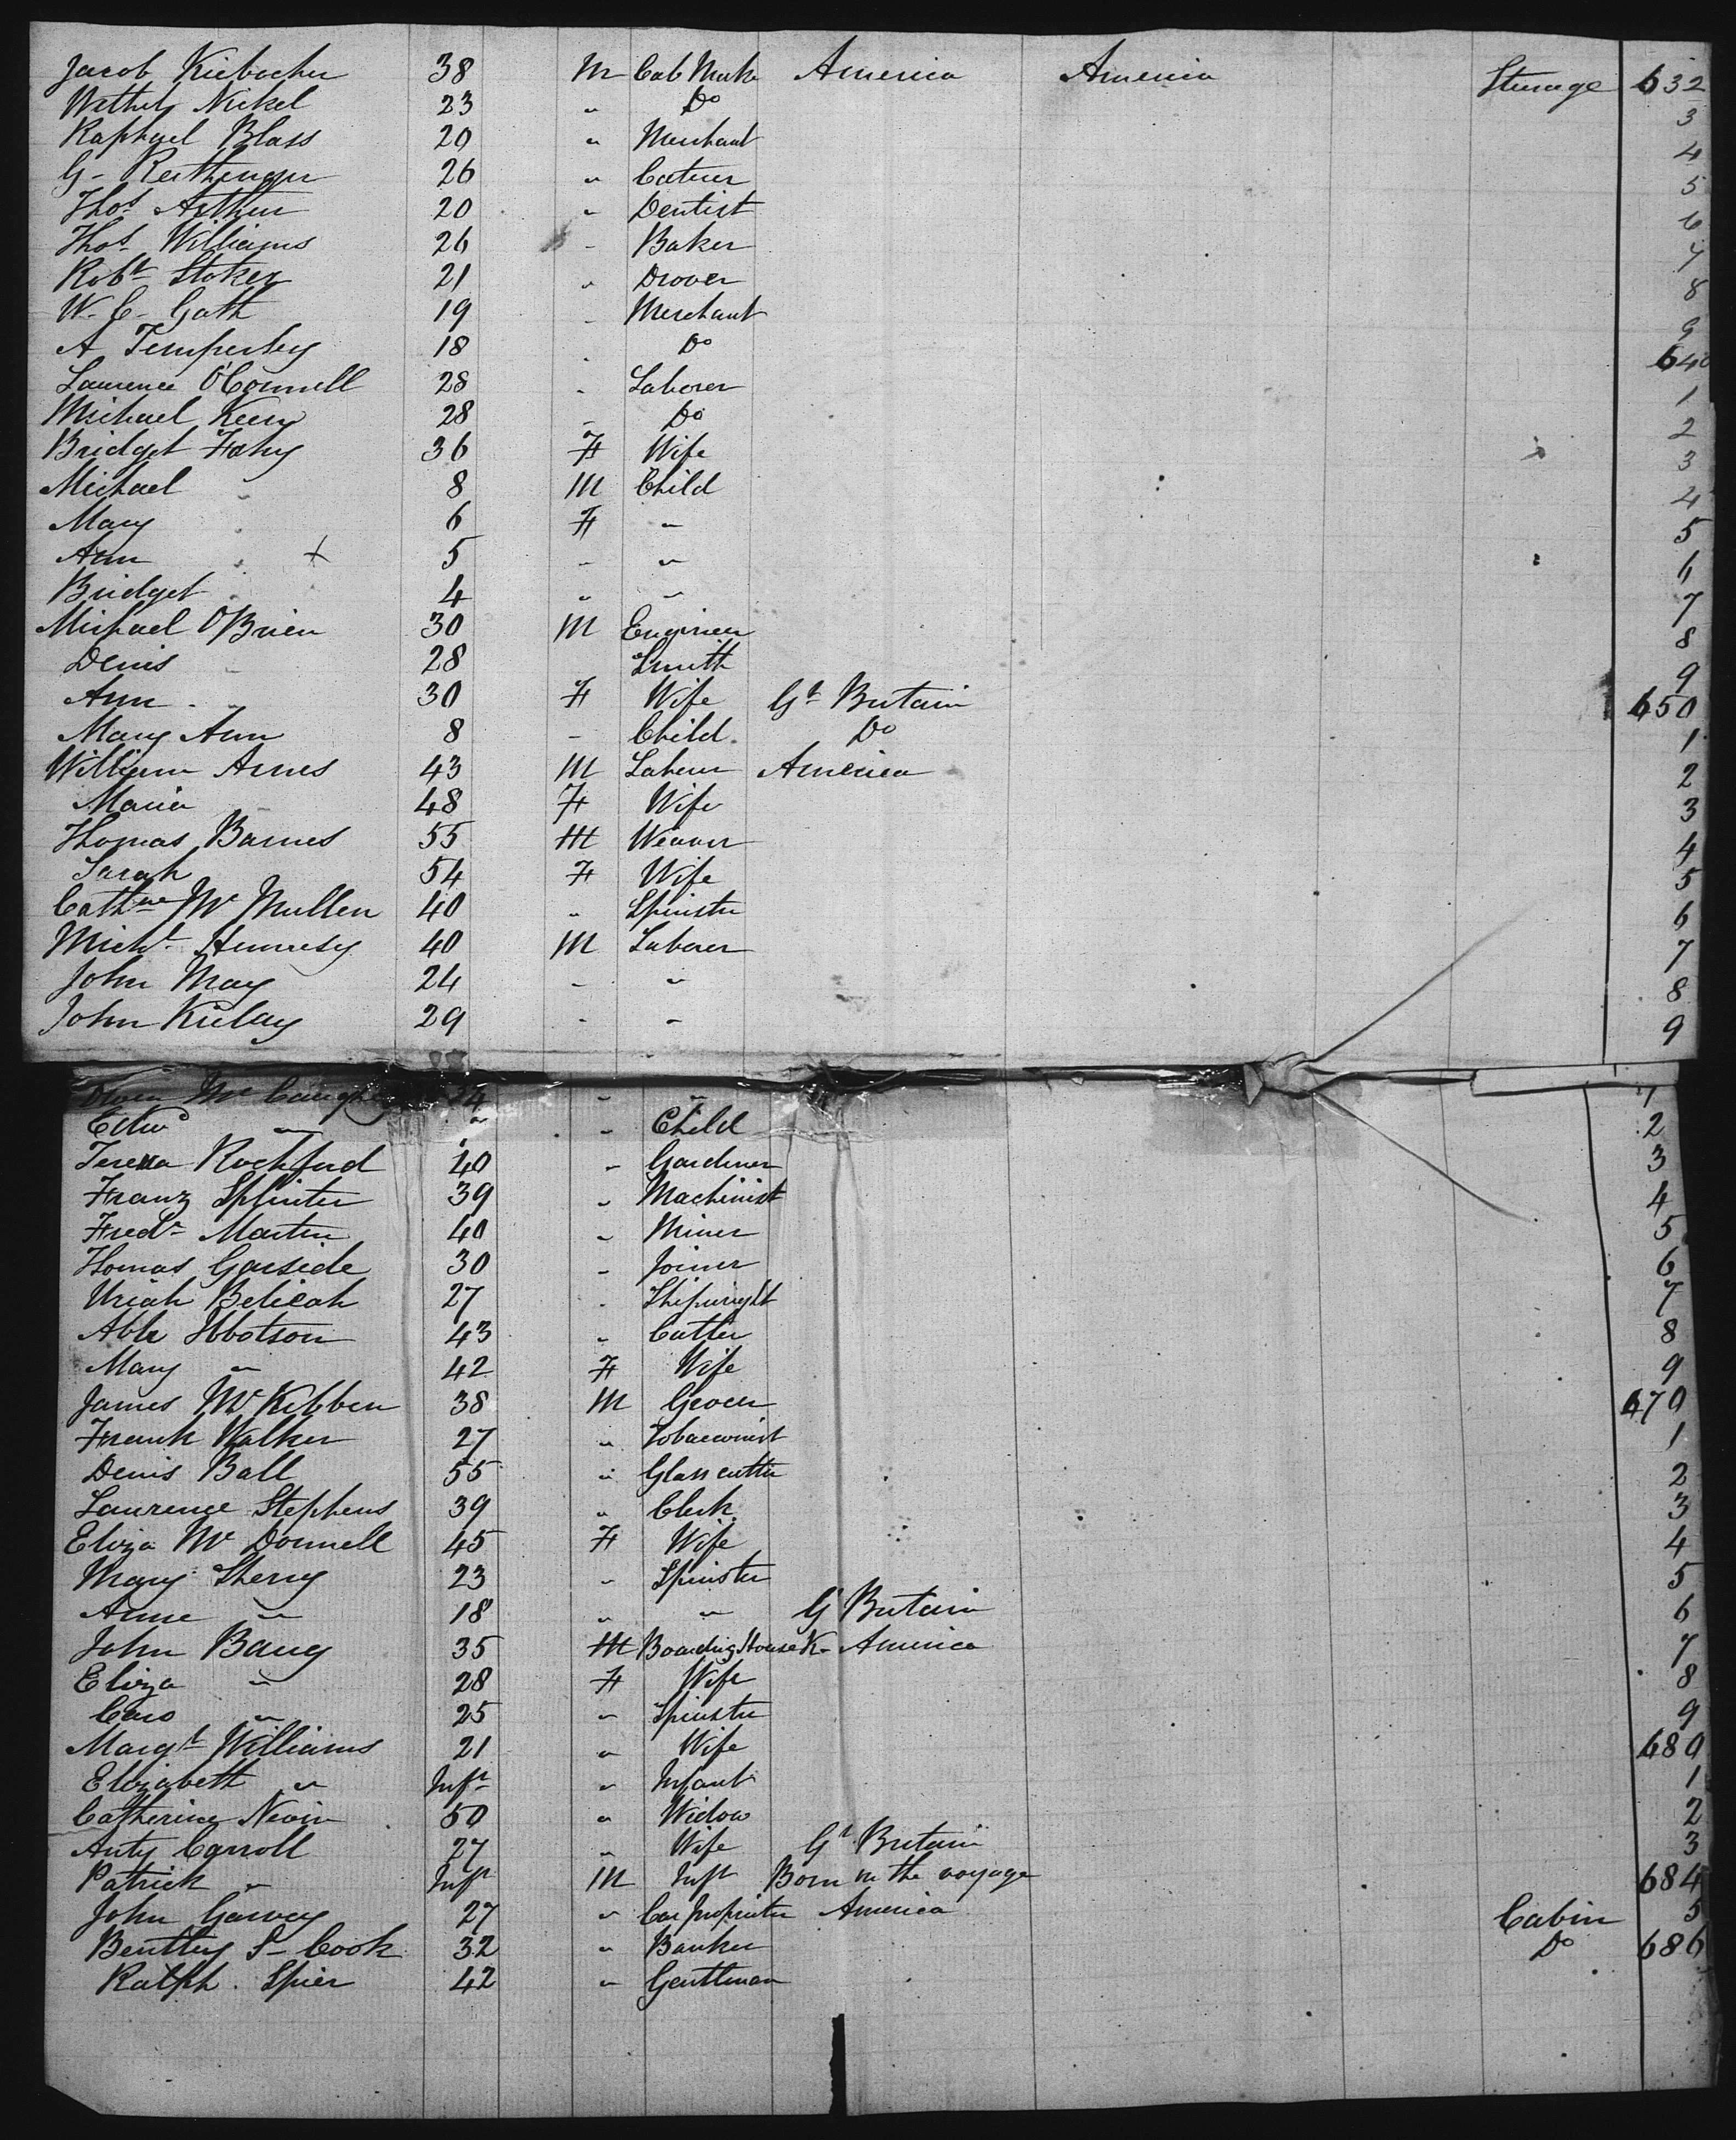 Jacob Kiebacher 38 M Cab Make America America Steerage 632
Nickel 23 " Do 3
Raphael Blass 20 " Merchant 4
G- 26 " 5
Thos Arthur 20 " Dentist 6
Thos Williams 26 " Baker 7
Robt Stoker 21 " Drover 8
W. C. Gath 19 " Merchant 9
A Temperley 18 " Do 640
Laurence O'Connell 28 " Laborer 1
Michael Keen 28 " Do 2
Bridget Fahy 36 F Wife 3
Michael " 8 M Child 4
Mary " 6 F " 5
Ann " X 5 " " 6
Bridget " 4 " " 7
Michael O'Brien 30 M Engineer 8
Denis " 28 Smith 9
Ann " 30 F Wife Gt Britain 650
Mary Ann 8 " Child Do 1
William Ames 43 M Laborer America 2
Maria 48 F Wife 3
Thomas Barnes 55 M Weaver 4
Sarah 54 F Wife 5
Cathne Mc Mullen 40 " Spinster 6
Michl Hennesy 40 M Laborer 7
John May 24 " " 8
John Kielay 29 " " 9
Owen Mc 24 " " 1
Edwd " " " Child 2
Teressa Rochford 40 " Gardener 3
Franz Splinter 39 " Machinist 4
Fredk Martin 40 " Miner 5
Thomas Garside 30 " Joiner 6
Uriah 27 " Shipwright 7
Able Ibbotson 43 " Cutler 8
Mary " 42 F Wife 9
James McKibben 38 M Grocer 670
Frank Walker 27 " Tobacconist 1
Denis Ball 55 " Glass cutter 2
Laurence Stephens 39 " Clerk 3
Eliza Mc Donnell 45 F Wife 4
Mary Sherry 23 " Spinster 5
Anne " 18 " " Gt Britain 6
John Baug 35 M Boarding House K- America 7
Eliza " 28 F Wife 8
Caro " 25 " Spinster 9
Margt Williams 21 " Wife 680
Elizabeth " Inft " Infant 1
Catherine Nevin 50 " Widow 2
Anty Carroll 27 " Wife Gt Britain 3
Patrick " Inft M Inft Born on the voyage 684
John Garvey 27 " Car proprietor America Cabin 5
Bentley S- Cook 32 " Banker Do 686
Ralph Spier 42 " Gentleman